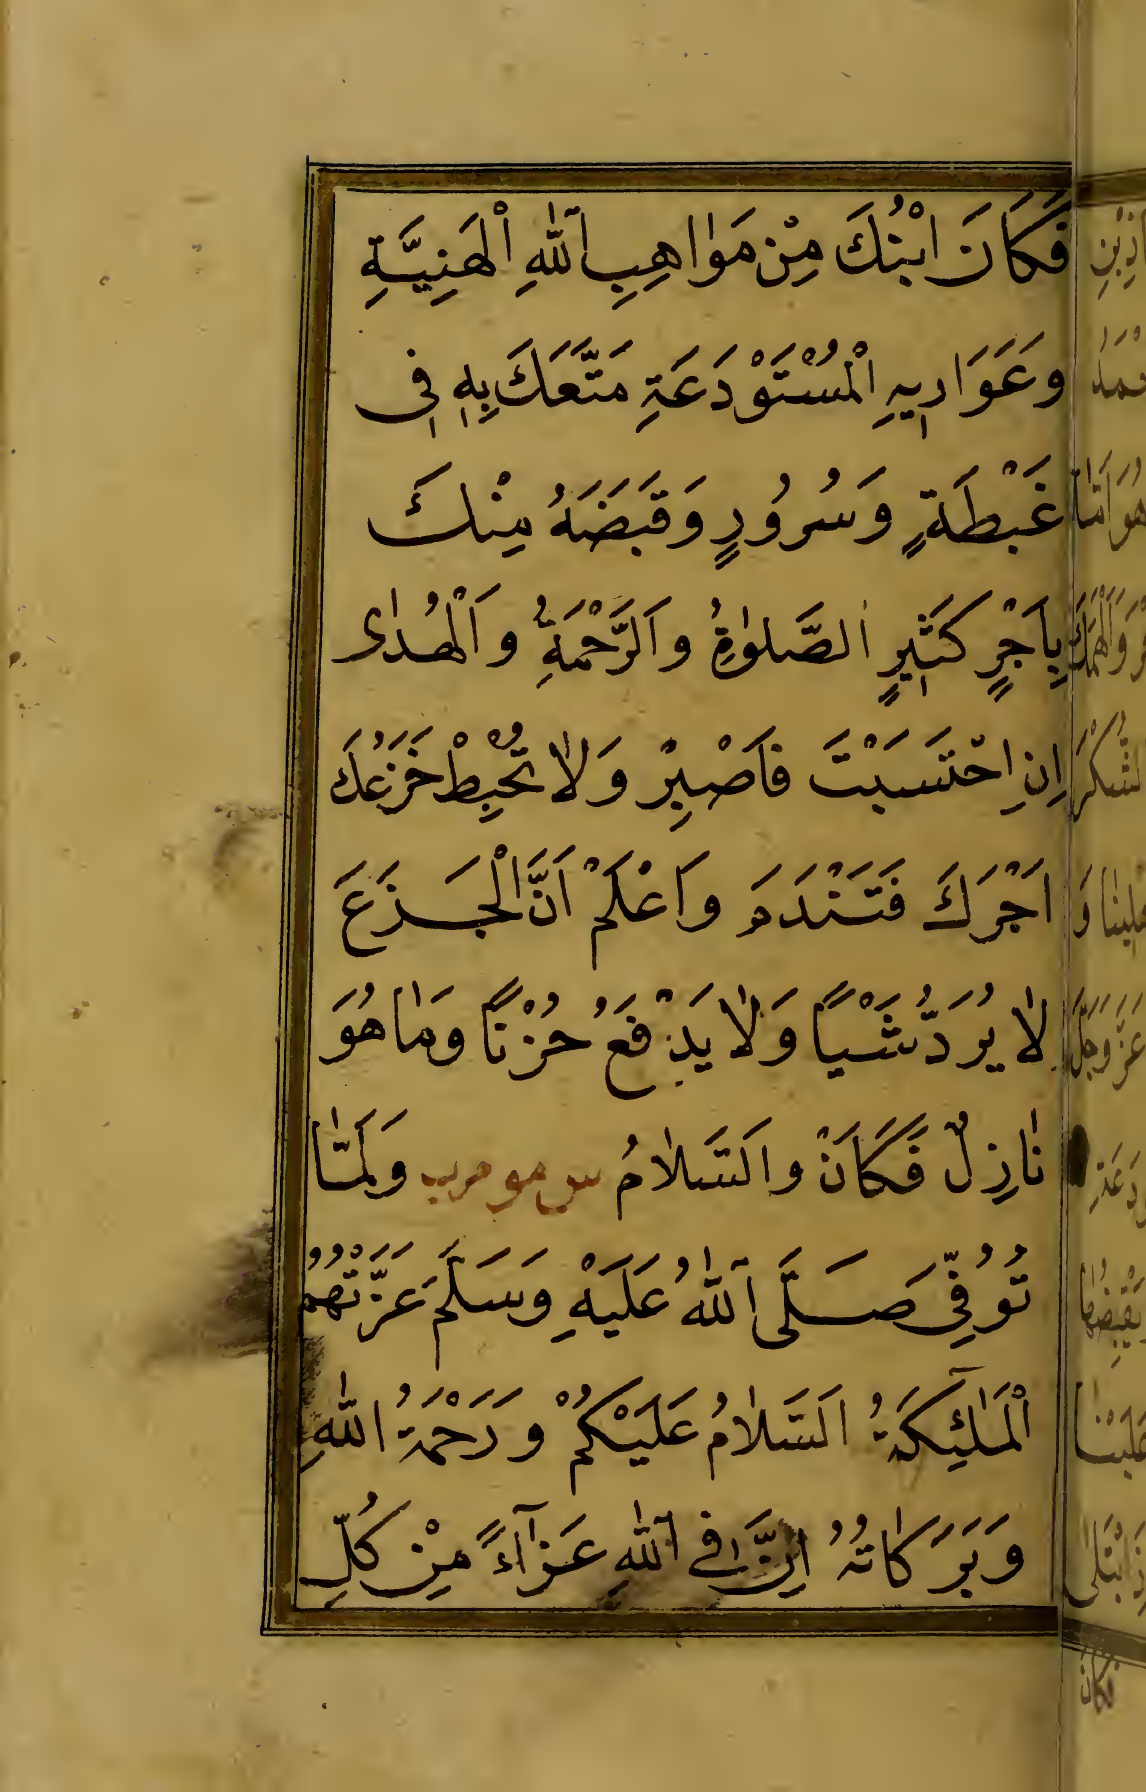 فَكَانَ ابْنُكَ مِنْ مَوَاهِبِ اللّٰهِ الْهَنِيَّةِ
وَعَوَارِيهِ الْمُسْتَوْدَعَةِ مَتَّعَكَ بِهِ فِي
غَبْطَةٍ وَسُرُورٍ وَقَبَضَهُ مِنْكَ
بِاَجْرٍ كَثِيرٍ الصَّلٰوةِ وَالرَّحْمَةِ وَالْهُدٰى
اِنِ احْتَسَبْتَ فَاصْبِرْ وَلَا تُحْبِطْ جَزَعُكَ
اَجْرَكَ فَتَنْدَمَ وَاعْلَمْ اَنَّ الْجَزَعَ
لَا يَرُدُّ شَيْئًا وَلَا يَدْفَعُ حُزْنًا وَمَا هُوَ
نَازِلٌ فَكَانَ وَالسَّلَامُ س مو مر ب وَلَمَّا
تُوُفِّيَ صَلَّى اللّٰهُ عَلَيْهِ وَسَلَّمَ عَزَّتْهُمُ
الْمَلٰئِكَةُ السَّلَامُ عَلَيْكُمْ وَرَحْمَةُ اللّٰهِ
وَبَرَكَاتُهُ اِنَّ فِي اللّٰهِ عَزَاءً مِنْ كُلِّ
فكان